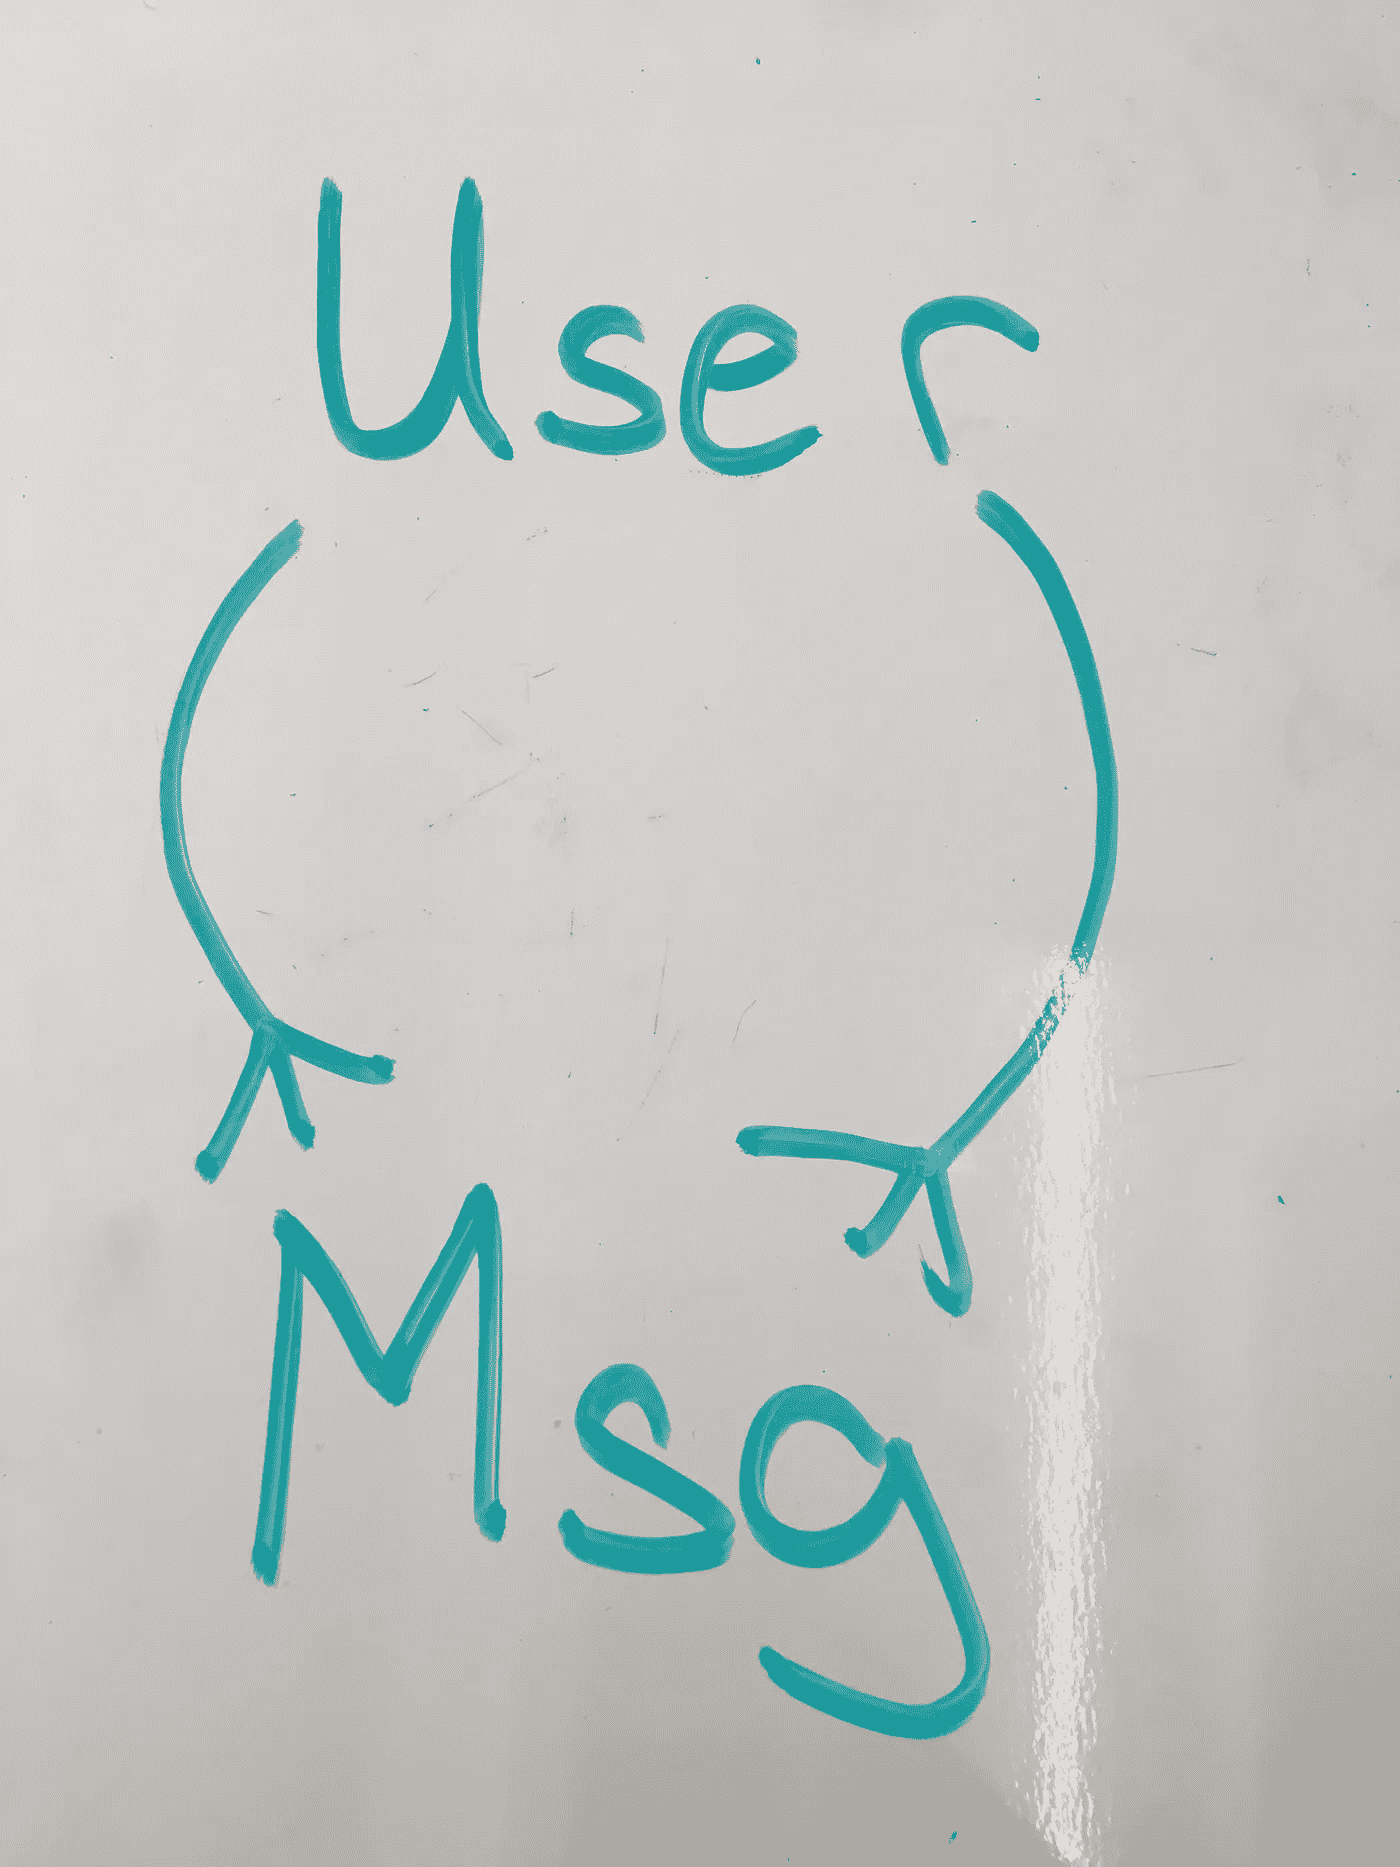 User
Msg